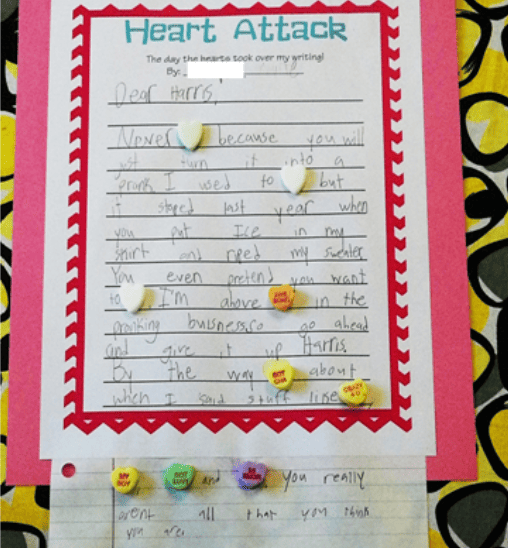 Heart Attack
The day the hearts took over my writing!
By:
Dear Harris,
Never because you will
just turn it into a
prank I used to but
it stoped last year when
you put Ice in my
shirt and riped my sweater
You even pretend you want
to I'm above in the
pranking buisness.so go ahead
and give it up Harris.
By the way GOT CHA about
when I said stuff like CRAZY 4 U,
MY BOY GOT LUV? and you really
arent all that you think
you are.